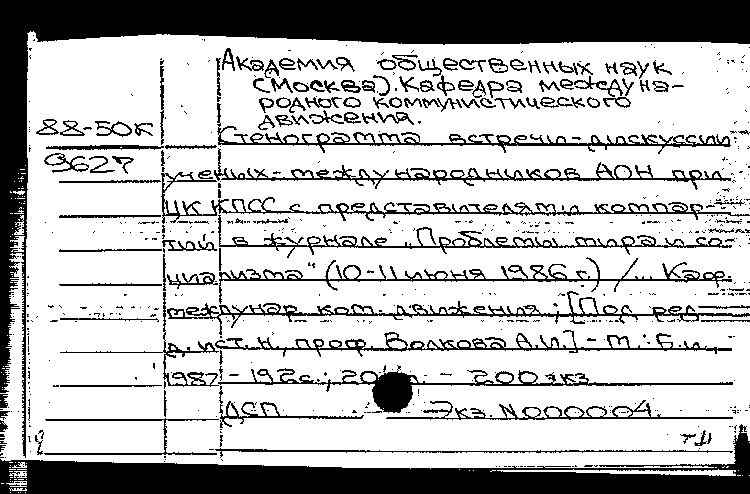 Академия общественных наук
(Москва). Кафедра междуна-
родного коммунистического
движения.
88-50к
Стенограмма встречи-дискуссии
9627
ученых-международников АОН при
ЦК КПСС с представителями компар-
тий в журнале „Проблемы мира и со-
циализма" (10-11 июня 1986 г.) /... Каф.
междунар. ком. движения; [Под ред.
д. ист. н., проф. Волкова А.И.] - М.: Б.и.,
1987 - 192с.; 20 - 200 экз.
ДСП Экз. N000004.